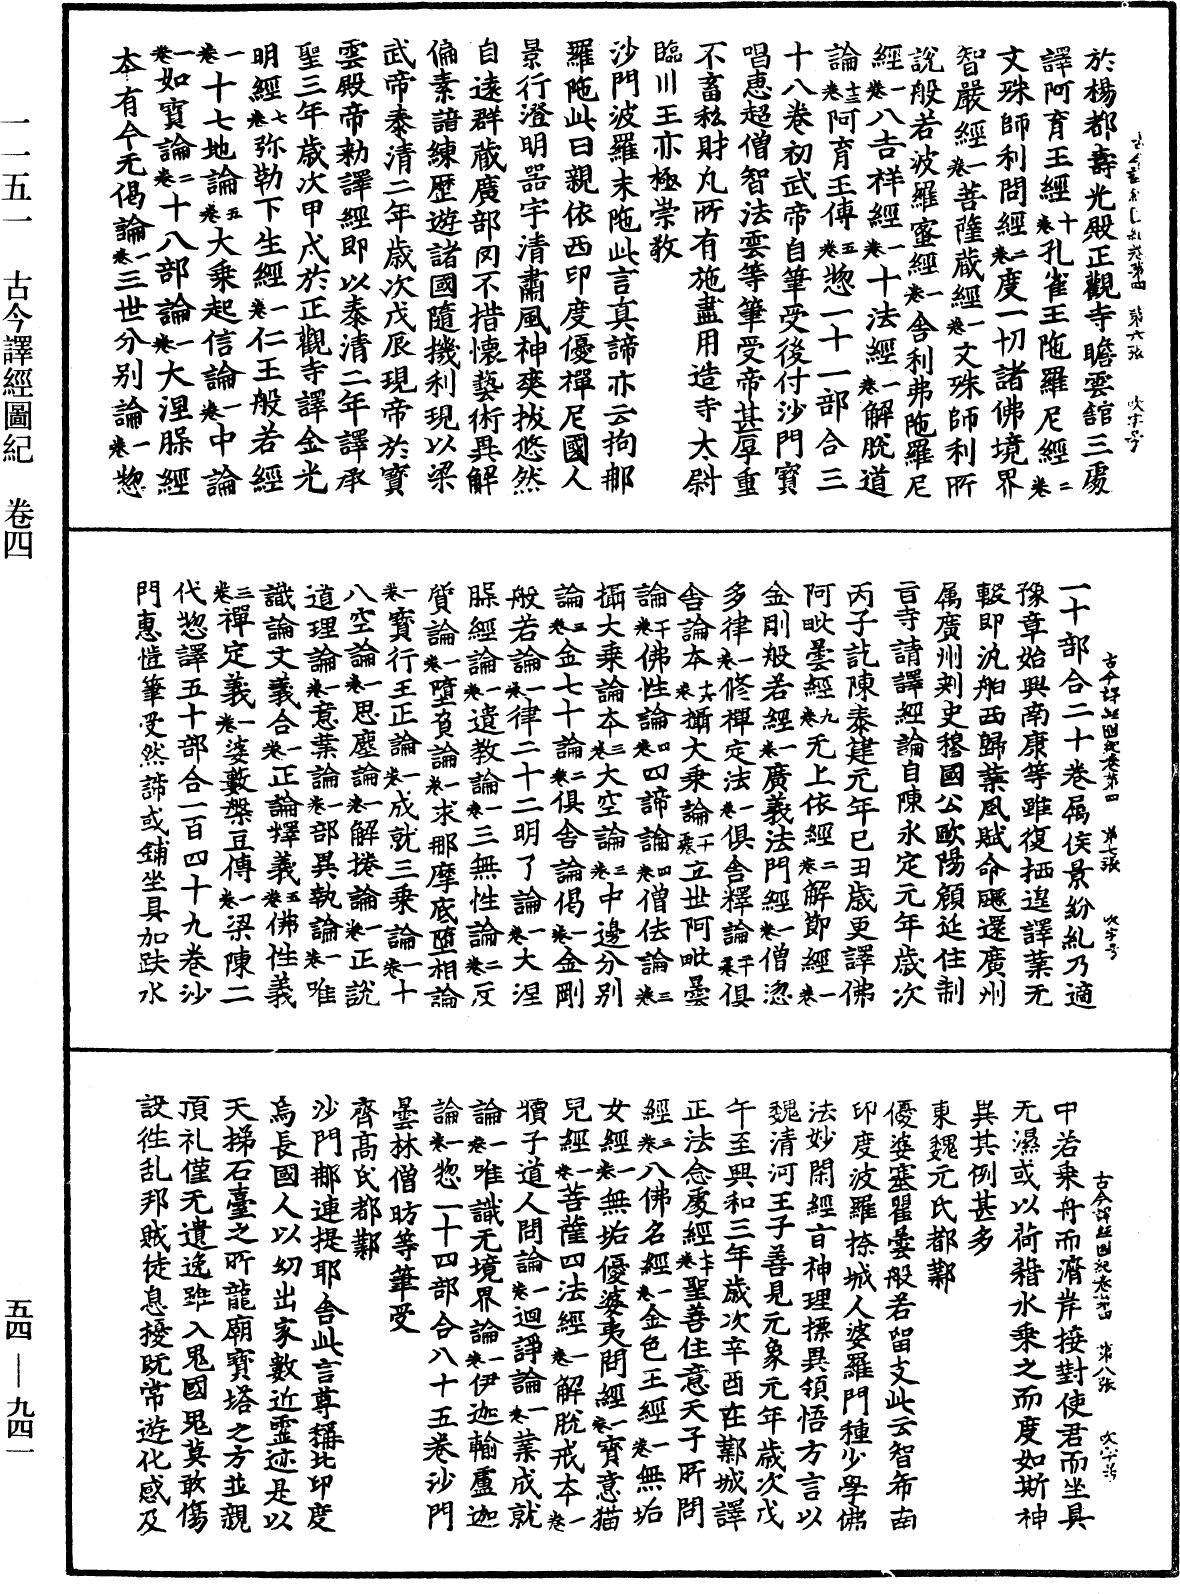 於楊都壽光殿正觀寺瞻雲舘三處
譯阿育王經十卷孔雀王陁羅尼經二卷
文殊師利問經二卷度一切諸佛境界
智嚴經一卷菩薩藏經一卷文殊師利所
說般若波羅蜜經一卷舍利弗陁羅尼
經一卷八吉祥經一卷十法經一卷解脫道
論十三卷阿育王傳五卷惣一十一部合三
十八卷初武帝自筆受後付沙門寶
唱惠超僧智法雲等筆受帝甚厚重
不畜私財凢所有施盡用造寺太尉
臨川王亦極崇敎
沙門波羅末陁此言真諦亦云拘郍
羅陁此曰親依西印度優禪尼國人
景行澄明器宇清肅風神爽拔悠然
自遠群藏廣部罔不措懷藝術異解
偏素諳練歷遊諸國隨機利現以梁
武帝泰清二年歲次戊辰現帝於寳
雲殿帝勑譯經即以泰清二年譯承
聖三年歲次甲戌於正觀寺譯金光
明經七卷弥勒下生經一卷仁王般若經
一卷十七地論五卷大乗起信論一卷中論
一卷如實論二卷十八部論一卷大涅槃經
本有今无偈論一卷三世分別論一卷惣
一十部合二十卷屬侯景紛糺乃適
豫章始興南康等雖復栖遑譯葉无
輟即汎舶西歸葉風賦命飃還廣州
属廣州刾史穆國公歐陽頠延住制
旨寺請譯經論自陳永定元年歲次
丙子訖陳泰建元年已丑歲更譯佛
阿毗曇經九卷无上依經二卷解節經一卷
金剛般若經一卷廣義法門經一卷僧澁
多律一卷修禪定法一卷俱舍釋論二十卷俱
舍論本十六卷攝大乗論十二卷立世阿毗曇
論十卷佛性論四卷四諦論四卷僧佉論三卷
攝大乗論本三卷大空論三卷中邊分別
論三卷金七十論二卷俱舍論偈一卷金剛
般若論一卷律二十二明了論一卷大涅
槃經論一卷遺教論一卷三無性論二卷反
質論一卷墮負論一卷求那摩底墮相論
一卷寶行王正論一卷成就三乗論一卷十
八空論一卷思塵論一卷解捲論一卷正說
道理論一卷意葉論一卷部異執論一卷唯
識論文義合一卷正論釋義五卷佛性義
三卷禪定義一卷婆數槃豆傳一卷梁陳二
代惣譯五十部合一百四十九卷沙
門惠愷筆受然諦或鋪坐具加趺水
中若乗舟而濟岸接對使君而坐具
无濕或以荷藉水乗之而度如斯神
異其例甚多
東魏元氏都鄴
優婆塞瞿曇般若留支此云智希南
印度波羅㮈城人婆羅門種少學佛
法妙閑經旨神理摽異領悟方言以
魏清河王子善見元象元年歲次戊
午至興和三年歲次辛酉在鄴城譯
正法念處經七十卷聖善住意天子所問
經三卷八佛名經一卷金色王經一卷無垢
女經一卷無垢優婆夷問經一卷寳意猫
兒經一卷菩薩四法經一卷解脫戒本一卷
犢子道人問論一卷迴諍論一卷葉成就
論一卷唯識无境界論一卷伊迦輸盧迦
論一卷惣一十四部合八十五卷沙門
曇林僧昉等筆受
齊高氏都鄴
沙門郍連提耶舍此言尊稱北印度
烏長國人以幼出家數近靈迹是以
天梯石臺之所龍廟寳塔之方並親
頂礼僅无遺逸雖入鬼國鬼莫敢傷
設徃乱邦賊徒息擾旣常遊化感及
古今譯經圖紀卷第四 第六张 吹字号
古今譯經圖紀卷第四 第七張 吹字号
古今譯經圖紀卷第四 第八张 吹字号
一一五一 古今譯經圖紀 卷四
五四——九四一